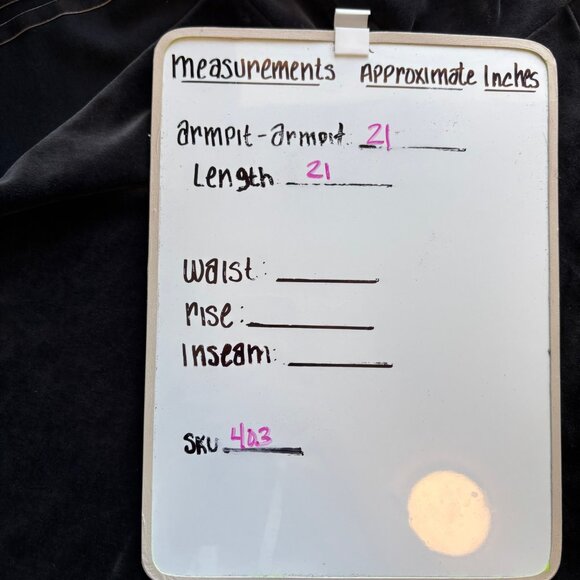 measurements Approximate Inches
armpit-armpit 21
Length 21
waist:
rise:
Inseam:
SKU 403